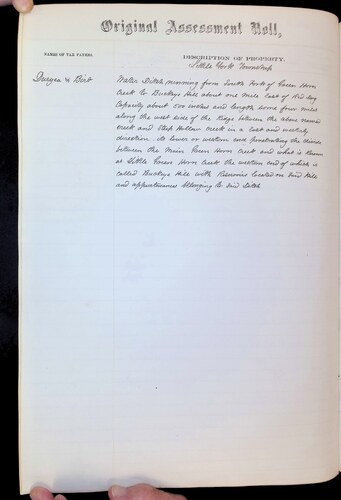 Original Assessment Roll,
NAMES OF TAX PAYERS.
DESCRIPTION OF PROPERTY.
Little York Township
Duryea &
Water Ditch running from South Fork of Green Horn
Creek to Buckeye Hill about one mile East of Red Dog
Capacity about 500 inches and length some four miles
along the west side of the Ridge between the above named
creek and Steep Hollow creek in a East and westerly
direction. Its lower or western end penetrating the divide
between the Main Green Horn Creek and what is Known
as Little Green Horn Creek the western end of which is
called Buckeye Hill with Reservoirs located on said Hill
and appurtenances belonging to said Ditch